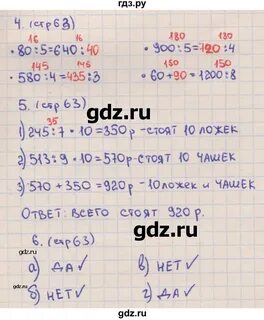 gdz.ru
4. (стр 63)
16 16 180 180
• 80 : 5 = 640 : 40 • 900 : 5 = 720 : 4
145 145 150 150
• 580 : 4 = 435 : 3 • 60 + 90 = 1200 : 8
5. (стр 63)
35
1) 245 : 7 · 10 = 350 р - стоят 10 ложек
2) 513 : 9 · 10 = 570 р - стоят 10 чашек
3) 570 + 350 = 920 р - 10 ложек и чашек
Ответ: всего стоят 920 р.
6. (стр 63)
а) да ✓ в) нет ✓
б) нет ✓ г) да ✓
gdz.ru
gdz.ru
gdz.ru
gdz.ru